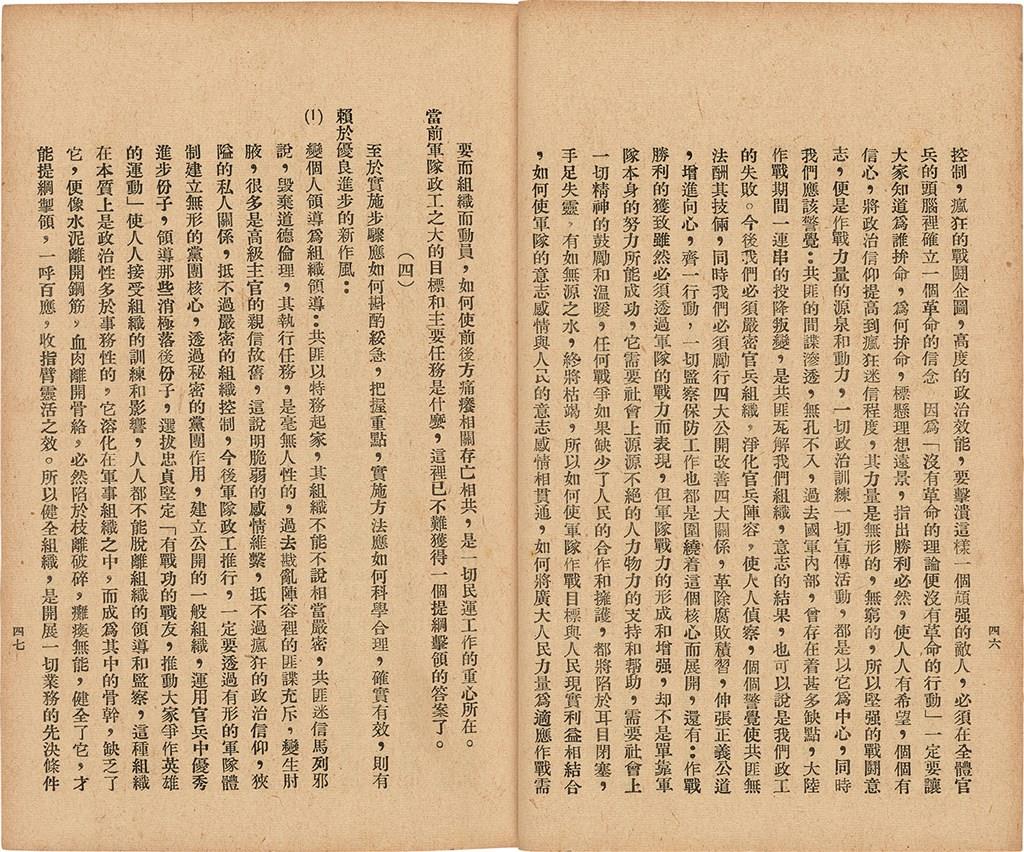 控制，瘋狂的戰鬪企圖，高度的政治效能，要擊潰這樣一個頑强的敵人，必須在全體官
兵的頭腦裡確立一個革命的信念　因爲「沒有革命的理論便沒有革命的行動」一定要讓
大家知道爲誰拚命，爲何拚命，標懸理想遠景，指出勝利必然，使人人有希望，個個有
信心，將政治信仰提高到瘋狂迷信程度，其力量是無形的，無窮的，所以堅强的戰鬪意
志，便是作戰力量的源泉和動力，一切政治訓練一切宣傳活動，都是以它爲中心，同時
我們應該警覺：共匪的間諜滲透，無孔不入，過去國軍內部，曾存在着甚多缺點，大陸
作戰期間一連串的投降叛變，是共匪瓦解我們組織，意志的結果，也可以說是我們政工
的失敗。今後我們必須嚴密官兵組織，淨化官兵陣容，使人人偵察，個個警覺使共匪無
法酬其技倆，同時我們必須勵行四大公開改善四大關係，革除腐敗積習，伸張正義公道
，增進向心，齊一行動，一切監察保防工作也都是圍繞着這個核心而展開，還有：作戰
勝利的獲致雖然必須透過軍隊的戰力而表現，但軍隊戰力的形成和增强，却不是單靠軍
隊本身的努力所能成功，它需要社會上源源不絕的人力物力的支持和帮助，需要社會上
一切精神的鼓勵和溫暖，任何戰爭如果缺少了人民的合作和擁護，都將陷於耳目閉塞，
手足失靈，有如無源之水，終將枯竭，所以如何使軍隊作戰目標與人民現實利益相結合
，如何使軍隊的意志感情與人民的意志感情相貫通，如何將廣大人民力量爲適應作戰需
四六
要而組織而動員，如何使前後方痛癢相關存亡相共，是一切民運工作的重心所在。
當前軍隊政工之大的目標和主要任務是什麼，這裡已不難獲得一個提綱擊領的答案了。
（四）
至於實施步驟應如何斟酌緩急，把握重點，實施方法應如何科學合理，確實有效，則有
賴於優良進步的新作風：
(1)　變個人領導爲組織領導：共匪以特務起家，其組織不能不說相當嚴密，共匪迷信馬列邪
說，毀棄道德倫理，其執行任務，是毫無人性的，過去戡亂陣容裡的匪諜充斥，變生肘
腋，很多是高級主官的親信故舊，這說明脆弱的感情維繫，抵不過瘋狂的政治信仰，狹
隘的私人關係，抵不過嚴密的組織控制，今後軍隊政工推行，一定要透過有形的軍隊體
制建立無形的黨團核心，透過秘密的黨團作用，建立公開的一般組織，運用官兵中優秀
進步份子，領導那些消極落後份子，選拔忠貞堅定「有戰功的戰友，推動大家爭作英雄
的運動」使人人接受組織的訓練和影響，人人都不能脫離組織的領導和監察，這種組織
在本質上是政治性多於事務性的，它溶化在軍事組織之中，而成爲其中的骨幹，缺乏了
它，便像水泥離開鋼筋，血肉離開骨絡，必然陷於枝離破碎，癱瘓無能，健全了它，才
能提綱掣領，一呼百應，收指臂靈活之效。所以健全組織，是開展一切業務的先決條件
四七